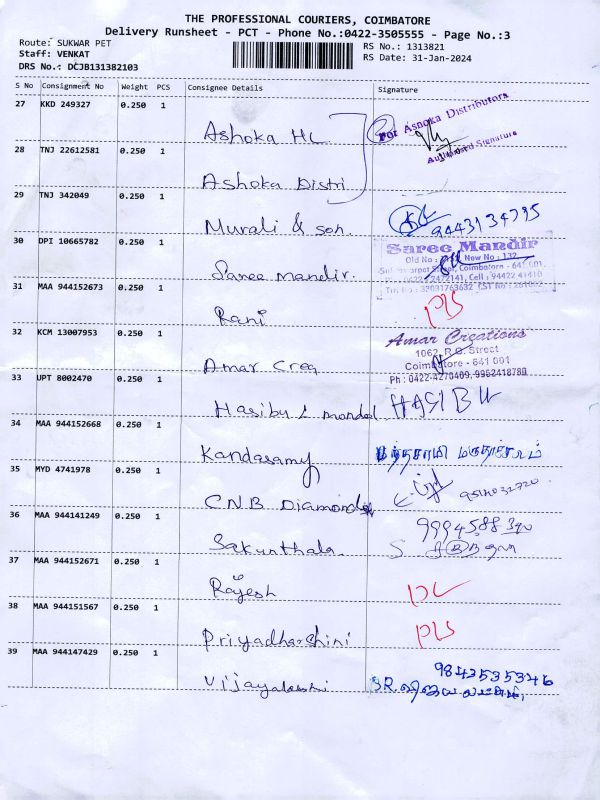 THE PROFESSIONAL COURIERS, COIMBATORE
Delivery Runsheet - PCT - Phone No.:0422-3505555 - Page No.:3
Route: SUKWAR PET
RS No.: 1313821
Staff: VENKAT
RS Date: 31-Jan-2024
DRS No.: DCJB131382103
S No Consignment No Weight PCS Consignee Details Signature
27 KKD 249327 0.250 1
Ashoka HL
For Ashoka Distributors
Authorised Signature
28 TNJ 22612581 0.250 1
Ashoka Distri
29 TNJ 342049 0.250 1
Murali & son.
9443134795
30 DPI 10665782 0.250 1
Saree mandir.
Saree Mandir
Old No : New No : 132
Coimbatore - 641 001.
Cell : 94422 41410
31 MAA 944152673 0.250 1
Rani
32 KCM 13007953 0.250 1
Amar Crea
Amar Creations
1062, R.G. Street
Coimbatore - 641 001
Ph : 0422-4270409, 9952418789
33 UPT 8002470 0.250 1
Hasibul mandal
HASIBU
34 MAA 944152668 0.250 1
Kandasamy
35 MYD 4741978 0.250 1
CNB Diamonds
36 MAA 944141249 0.250 1
Sakunthala.
37 MAA 944152671 0.250 1
Rajesh
38 MAA 944151567 0.250 1
Priyadharshini
39 MAA 944147429 0.250 1
Vijayalakshi
9843535346